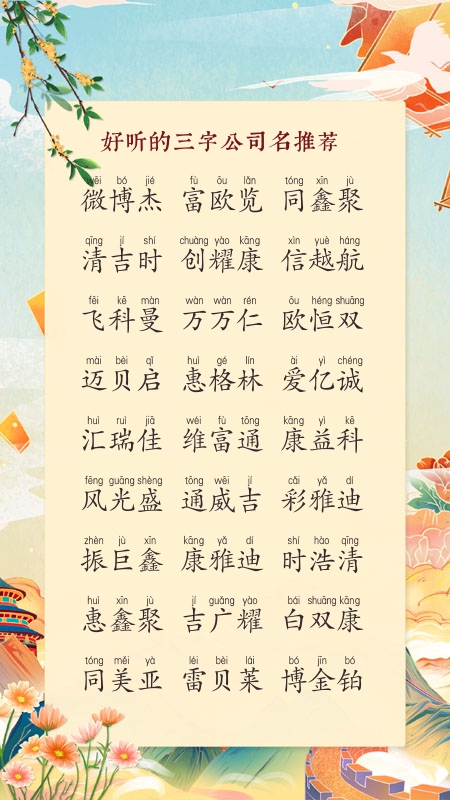 好听的三字公司名推荐
wēi bó jié fù ōu lǎn tóng xīn jù
微博杰 富欧览 同鑫聚
qīng jí shí chuàng yào kāng xìn yuè háng
清吉时 创耀康 信越航
fēi kē màn wàn wàn rén ōu héng shuāng
飞科曼 万万仁 欧恒双
mài bèi qǐ huì gé lín ài yì chéng
迈贝启 惠格林 爱亿诚
huì ruì jiā wéi fù tōng kāng yì kē
汇瑞佳 维富通 康益科
fēng guāng shèng tōng wēi jí cǎi yǎ dí
风光盛 通威吉 彩雅迪
zhèn jù xīn kāng yǎ dí shí hào qīng
振巨鑫 康雅迪 时浩清
huì xīn jù jí guǎng yào bái shuāng kāng
惠鑫聚 吉广耀 白双康
tóng měi yà léi bèi lái bó jīn bó
同美亚 雷贝莱 博金铂